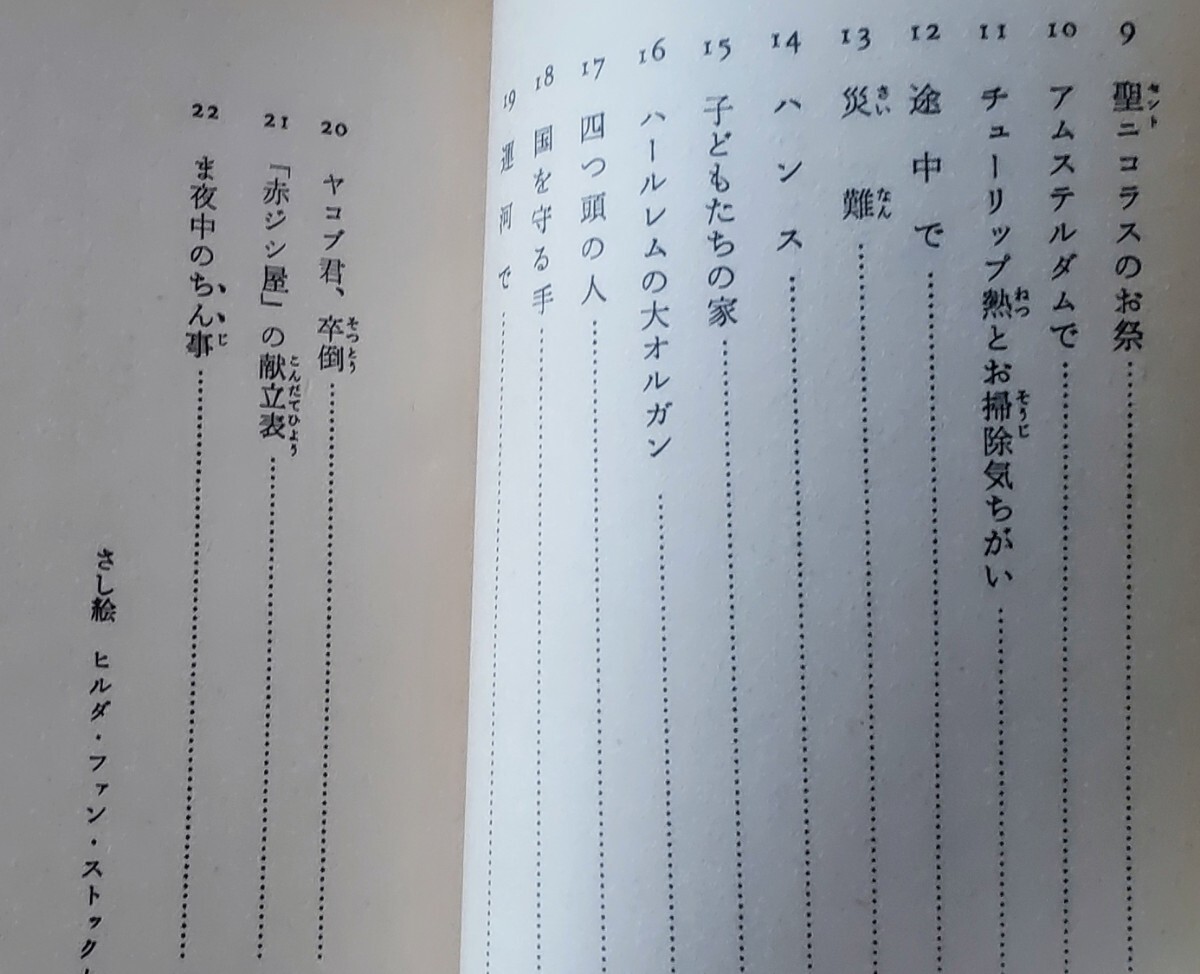 9 聖ニコラスのお祭
10 アムステルダムで
11 チューリップ熱とお掃除気ちがい
12 途中で
13 災難
14 ハンス
15 子どもたちの家
16 ハールレムの大オルガン
17 四つ頭の人
18 国を守る手
19 運河で
20 ヤコブ君、卒倒
21 「赤ジシ屋」の献立表
22 ま夜中のちん事
さし絵 ヒルダ・ファン・ストック